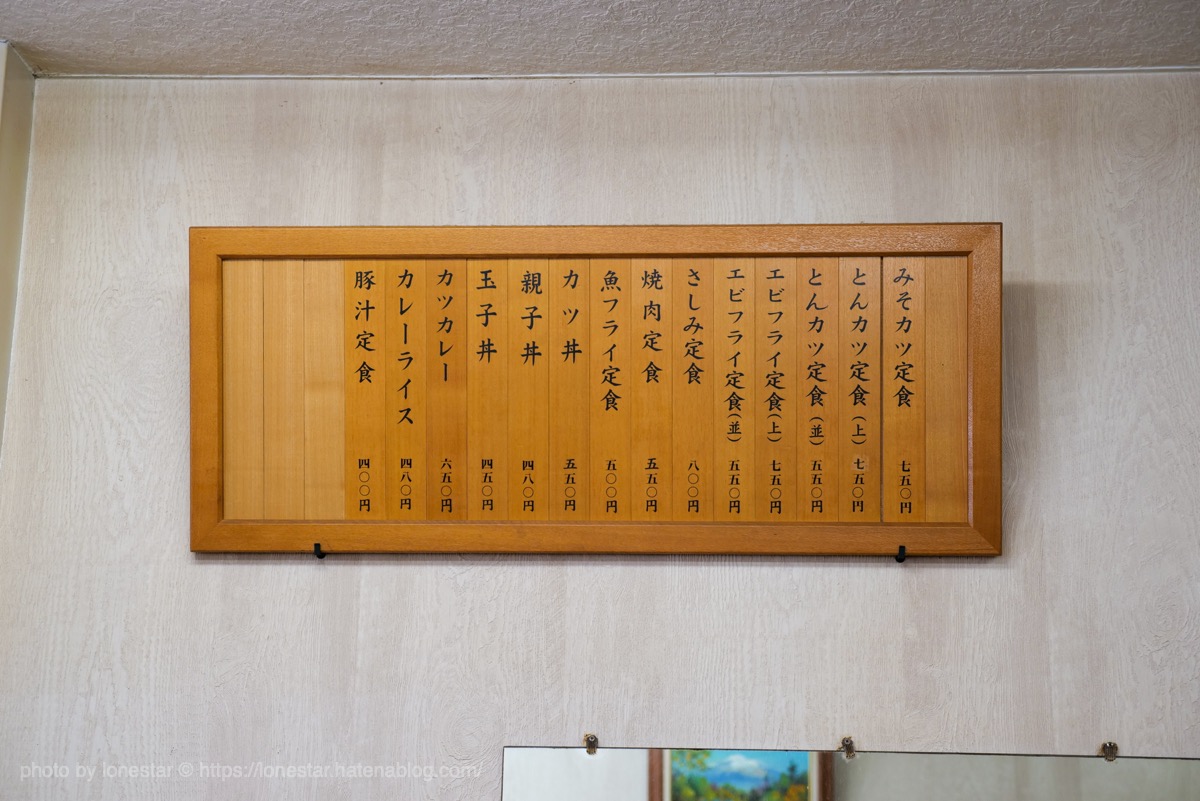 みそカツ定食 七五〇円
とんカツ定食(上) 七五〇円
とんカツ定食(並) 五五〇円
エビフライ定食(上) 七五〇円
エビフライ定食(並) 五五〇円
さしみ定食 八〇〇円
焼肉定食 五五〇円
魚フライ定食 五〇〇円
カツ丼 五五〇円
親子丼 四八〇円
玉子丼 四五〇円
カツカレー 六五〇円
カレーライス 四八〇円
豚汁定食 四〇〇円
photo by lonestar © https://lonestar.hatenablog.com/